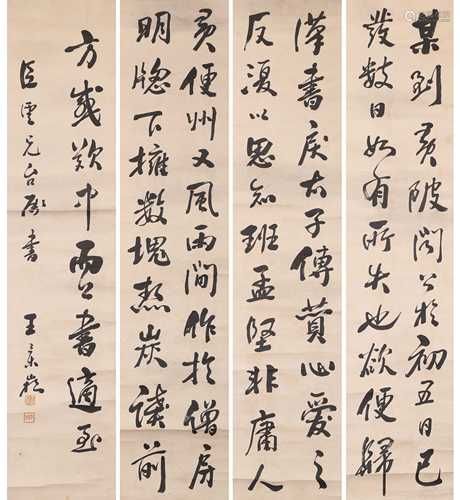 某到黃陂聞公於初五日已
發數日如有所失也欲便歸
漢書戾太子傳贊心愛之
反復以思知班孟堅非庸人
黃便州又風雨間作於僧房
明牕下擁數塊熟炭讀前
方感歎中而公書適至
臣兄台屬書
王景